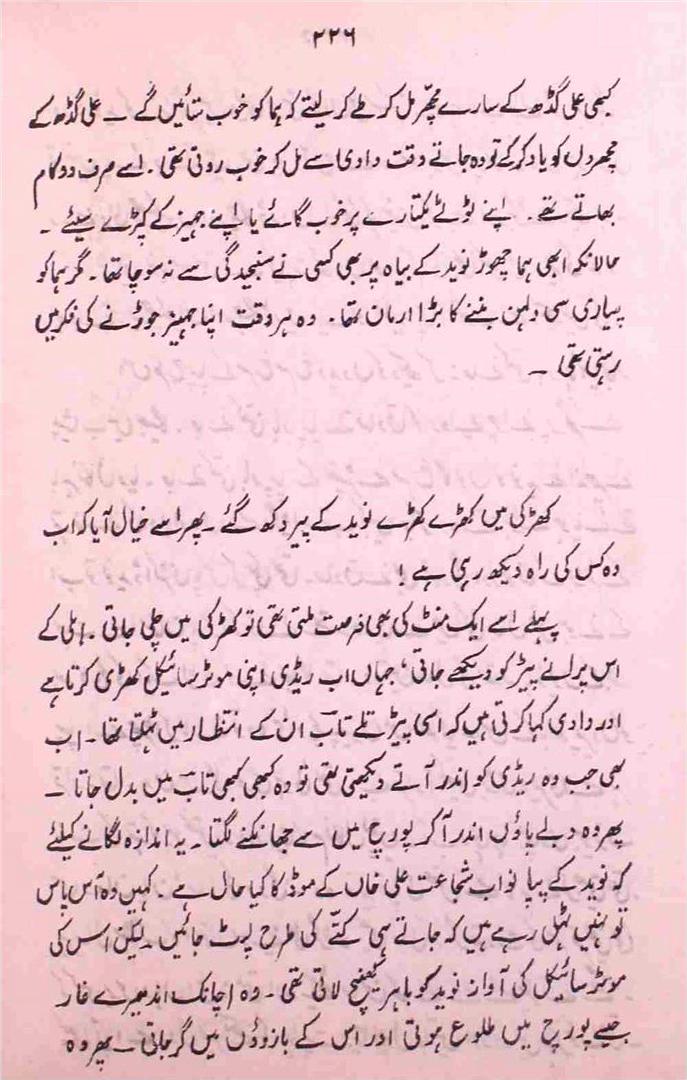 ۲۲۶
کبھی علی گڈھ کے سارے مچھّر مل کر طے کر لیتے کہ ہما کو خوب ستائیں گے ــ علی گڈھ کے
مچھروں کو یاد کر کے تو وہ جاتے وقت دادی سے مل کر خوب روتی تھی۔ اسے صرف دو کام
بھاتے تھے۔ اپنے ٹوٹے یکتارے پر خوب گائے یا اپنے جہیز کے کپڑے سیئے ۔
حالانکہ ابھی ہما چھوڑ نوید کے بیاہ پر بھی کسی نے سنجیدگی سے نہ سوچا تھا۔ مگر ہما کو
پیاری سی دلہن بننے کا بڑا ارمان تھا۔ وہ ہر وقت اپنا جہیز جوڑنے کی فکر میں
رہتی تھی ــ
کھڑکی میں کھڑے کھڑے نوید کے پیر دکھ گئے ۔ پھر اسے خیال آیا کہ اب
وہ کس کی راہ دیکھ رہی ہے !
پہلے اسے ایک منٹ کی بھی فرصت ملتی تھی تو کھڑکی میں چلی جاتی ۔ املی کے
اس پرانے پیڑ کو دیکھے جاتی، جہاں اب ریڈی اپنی موٹر سائیکل کھڑی کرتا ہے
اور دادی کہا کرتی ہیں کہ اسی پیڑ تلے تابؔ ان کے انتظار میں ٹہلتا تھا ۔ اب
بھی جب وہ ریڈی کو اندر آتے دیکھتی تھی تو وہ کبھی کبھی تابؔ میں بدل جاتا ــ
پھر وہ دبے پاؤں اندر آ کر پورچ میں سے جھانکنے لگتا ۔ یہ اندازہ لگانے کیلئے
کہ نوید کے پپا نواب شجاعت علی خاں کے موڈ کا کیا حال ہے ۔ کہیں وہ آس پاس
تو نہیں ٹہل رہے ہیں کہ جاتے ہی کتّے کی طرح لپٹ جائیں ۔ لیکن اس کی
موٹر سائیکل کی آواز نوید کو باہر کھینچ لاتی تھی ۔ وہ اچانک اندھیرے غار
جیسے پورچ میں طلوع ہوتی اور اس کے بازوؤں میں گر جاتی ــ پھر وہ